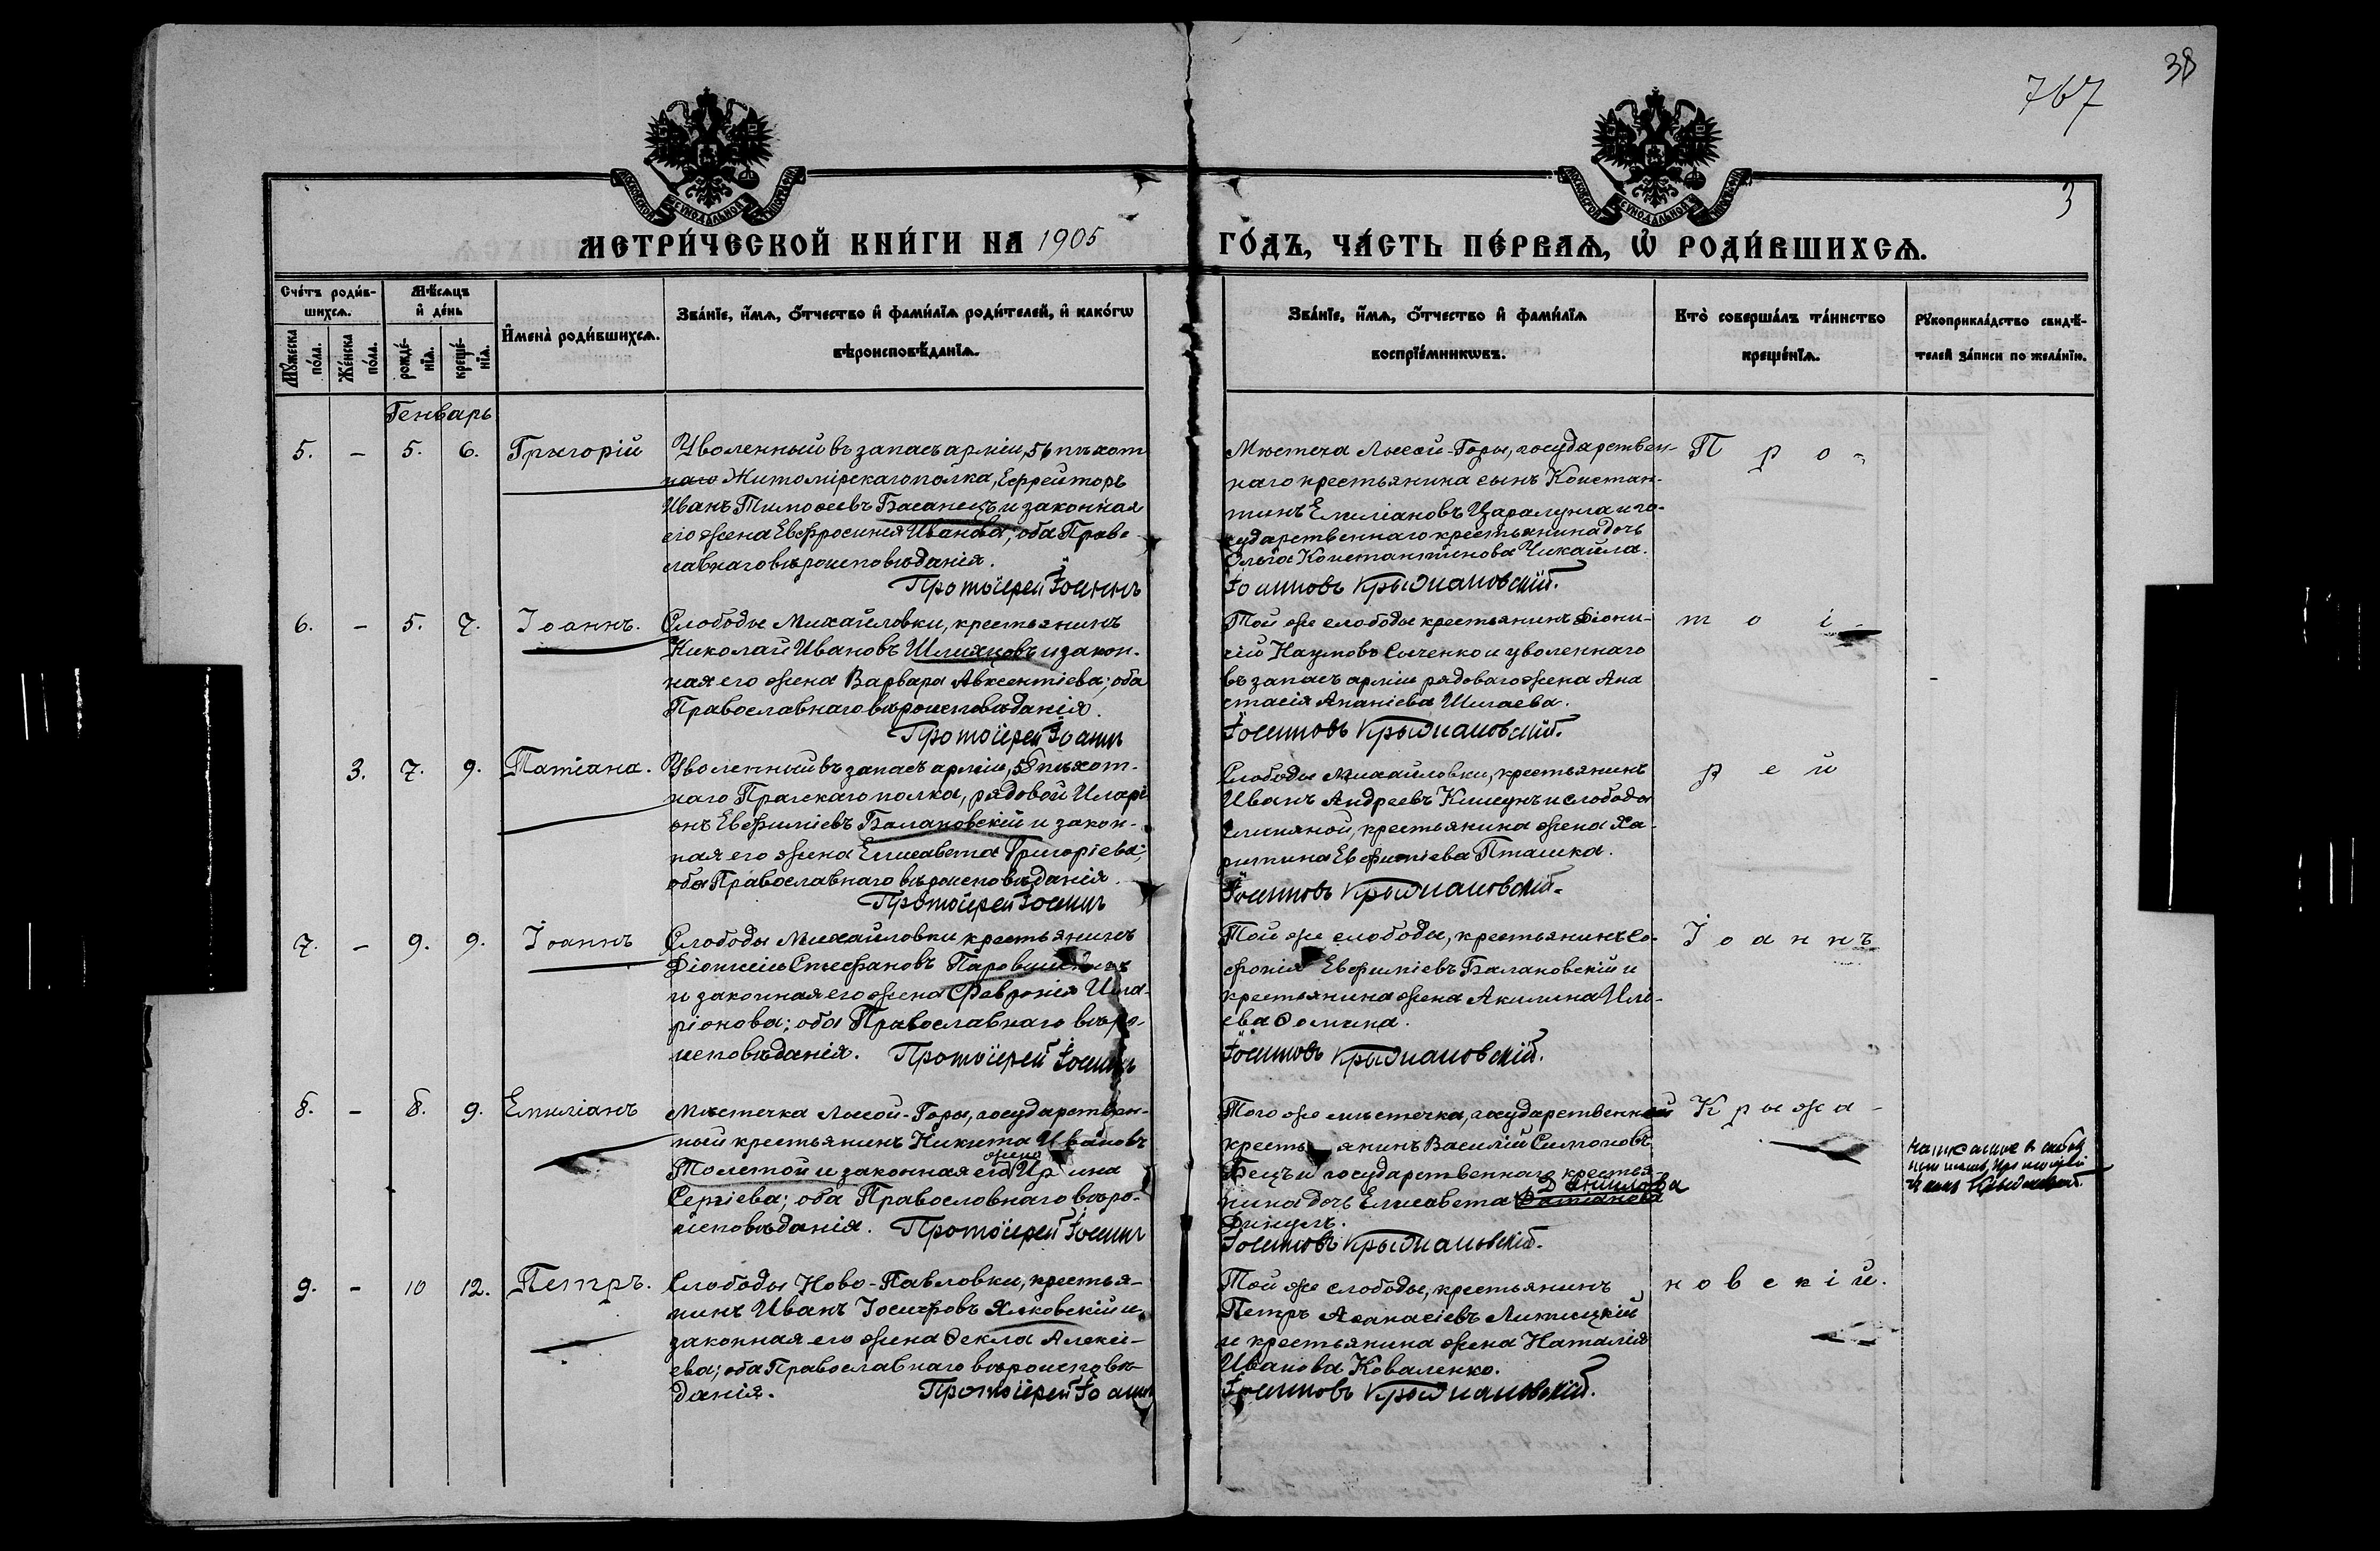 38
767
3
МЕТРИ́ЧЕСКОЙ КНИ́ГИ НА 1905
ГО́ДЪ, ЧА́СТЬ ПЕ́РВАЯ, Ѡ҆ РОДИ́ВШИХСЯ.
Сче́тъ роди́в-
шихся.
Мѣ́сяцъ
и҆ де́нь
Мꙋ́жеска по́ла.
Же́нска по́ла.
рожде́-
нїя.
креще́-
нїя.
И҆мена̀ роди́вшихся.
Зва́нїе, и҆́мя, о҆́тчество и҆ фами́лїя роди́телей, и҆ како́гѡ
вѣроисповѣ́данїя.
Зва́нїе, и҆́мя, о҆́тчество и҆ фами́лїя
воспрїе́мникѡвъ.
Кто̀ соверша́лъ та́инство
креще́нїя.
Рꙋкоприкла́дство свидѣ́-
телей за́писи по жела́нїю.
Генварь
5. - 5. 6. Григорій
Уволенный въ запасъ арміи, 56 пѣхот
наго Житомірскаго полка, Ефрейторъ
Иванъ Тимоѳеевъ Басанецъ и законная
его жена Евфросинія Иванова; оба Право
славнаго вѣроисповѣданія.
Протоіерей Іоаннъ
Мѣстечка Лысой-Горы, государствен-
наго крестьянина сынъ Констан-
тинъ Емиліановъ Царалунга и го-
сударственнаго крестьянина дочь
Ольга Константинова Чикайла.
Іоанновъ Крыжановскій.
П р о -
6. - 5. 7. Іоаннъ.
Слободы Михайловки, крестьянинъ
Николай Ивановъ Шляховъ и закон-
ная его жена Варвара Авксентіева; оба
Православнаго вѣроисповѣданія.
Протоіерей Іоаннъ
Той же слободы крестьянинъ Діони-
сій Наумовъ Сыченко и уволеннаго
въ запасъ арміи рядоваго жена Ана
стасія Ананіева Шигаева.
Іоанновъ Крыжановскій.
т о і -
3. 7. 9. Татіана.
Уволенный въ запасъ арміи, 58 пѣхот-
наго Прагскаго полка, рядовой Иларі
онъ Евфиміевъ Балановскій и закон-
ная его жена Елисавета Григоріева;
оба Православнаго вѣроисповѣданія.
Протоіерей Іоаннъ
Слободы Михайловки, крестьянинъ
Иванъ Андреевъ и слободы
крестьянина жена Ха-
ритина Евфиміева Пташка.
Іоанновъ Крыжановскій.
р е й
7. - 9. 9. Іоаннъ
Слободы Михайловки крестьянинъ
Діонисій Стефановъ
и законная его жена Февронія Ила-
ріонова; оба Православнаго вѣро-
исповѣданія. Протоіерей Іоаннъ
Той же слободы, крестьянинъ Со-
фроній Евфиміевъ Балановскій и
крестьянина жена Акилина Илі-
ева Ѳомина.
Іоанновъ Крыжановскій.
І о а н н ъ
8. - 8. 9. Емиліанъ
Мѣстечка Лысой-Горы, государствен-
ный крестьянинъ Никита Ивановъ
Толстой и законная его жена Ирина
Сергіева; оба Православнаго вѣро-
исповѣданія. Протоіерей Іоаннъ
Того же мѣстечка, государственный
крестьянинъ Василій Симоновъ
Бецъ и государственнаго крестья-
Данилова
нина дочь Елисавета
Іоанновъ Крыжановскій.
К р ы ж а -
9. - 10 12. Петръ.
Слободы Ново-Павловки, крестья-
нинъ Иванъ Іосифовъ Ялковскій и
законная его жена Ѳекла Алексі-
ева; оба Православнаго вѣроисповѣ-
данія. Протоіерей Іоаннъ
Той же слободы, крестьянинъ
Петръ Аѳанасіевъ
и крестьянина жена Наталія
Иванова Коваленко.
Іоанновъ Крыжановскій.
н о в с к і й.